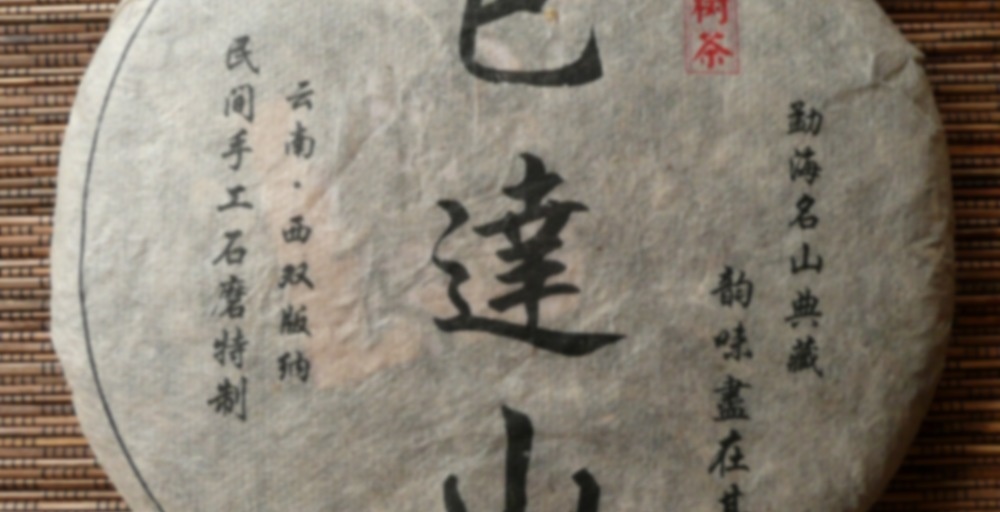 勐海名山典藏
韵味盡在其
樹茶
巴達山
云南·西双版纳
民间手工石磨特制